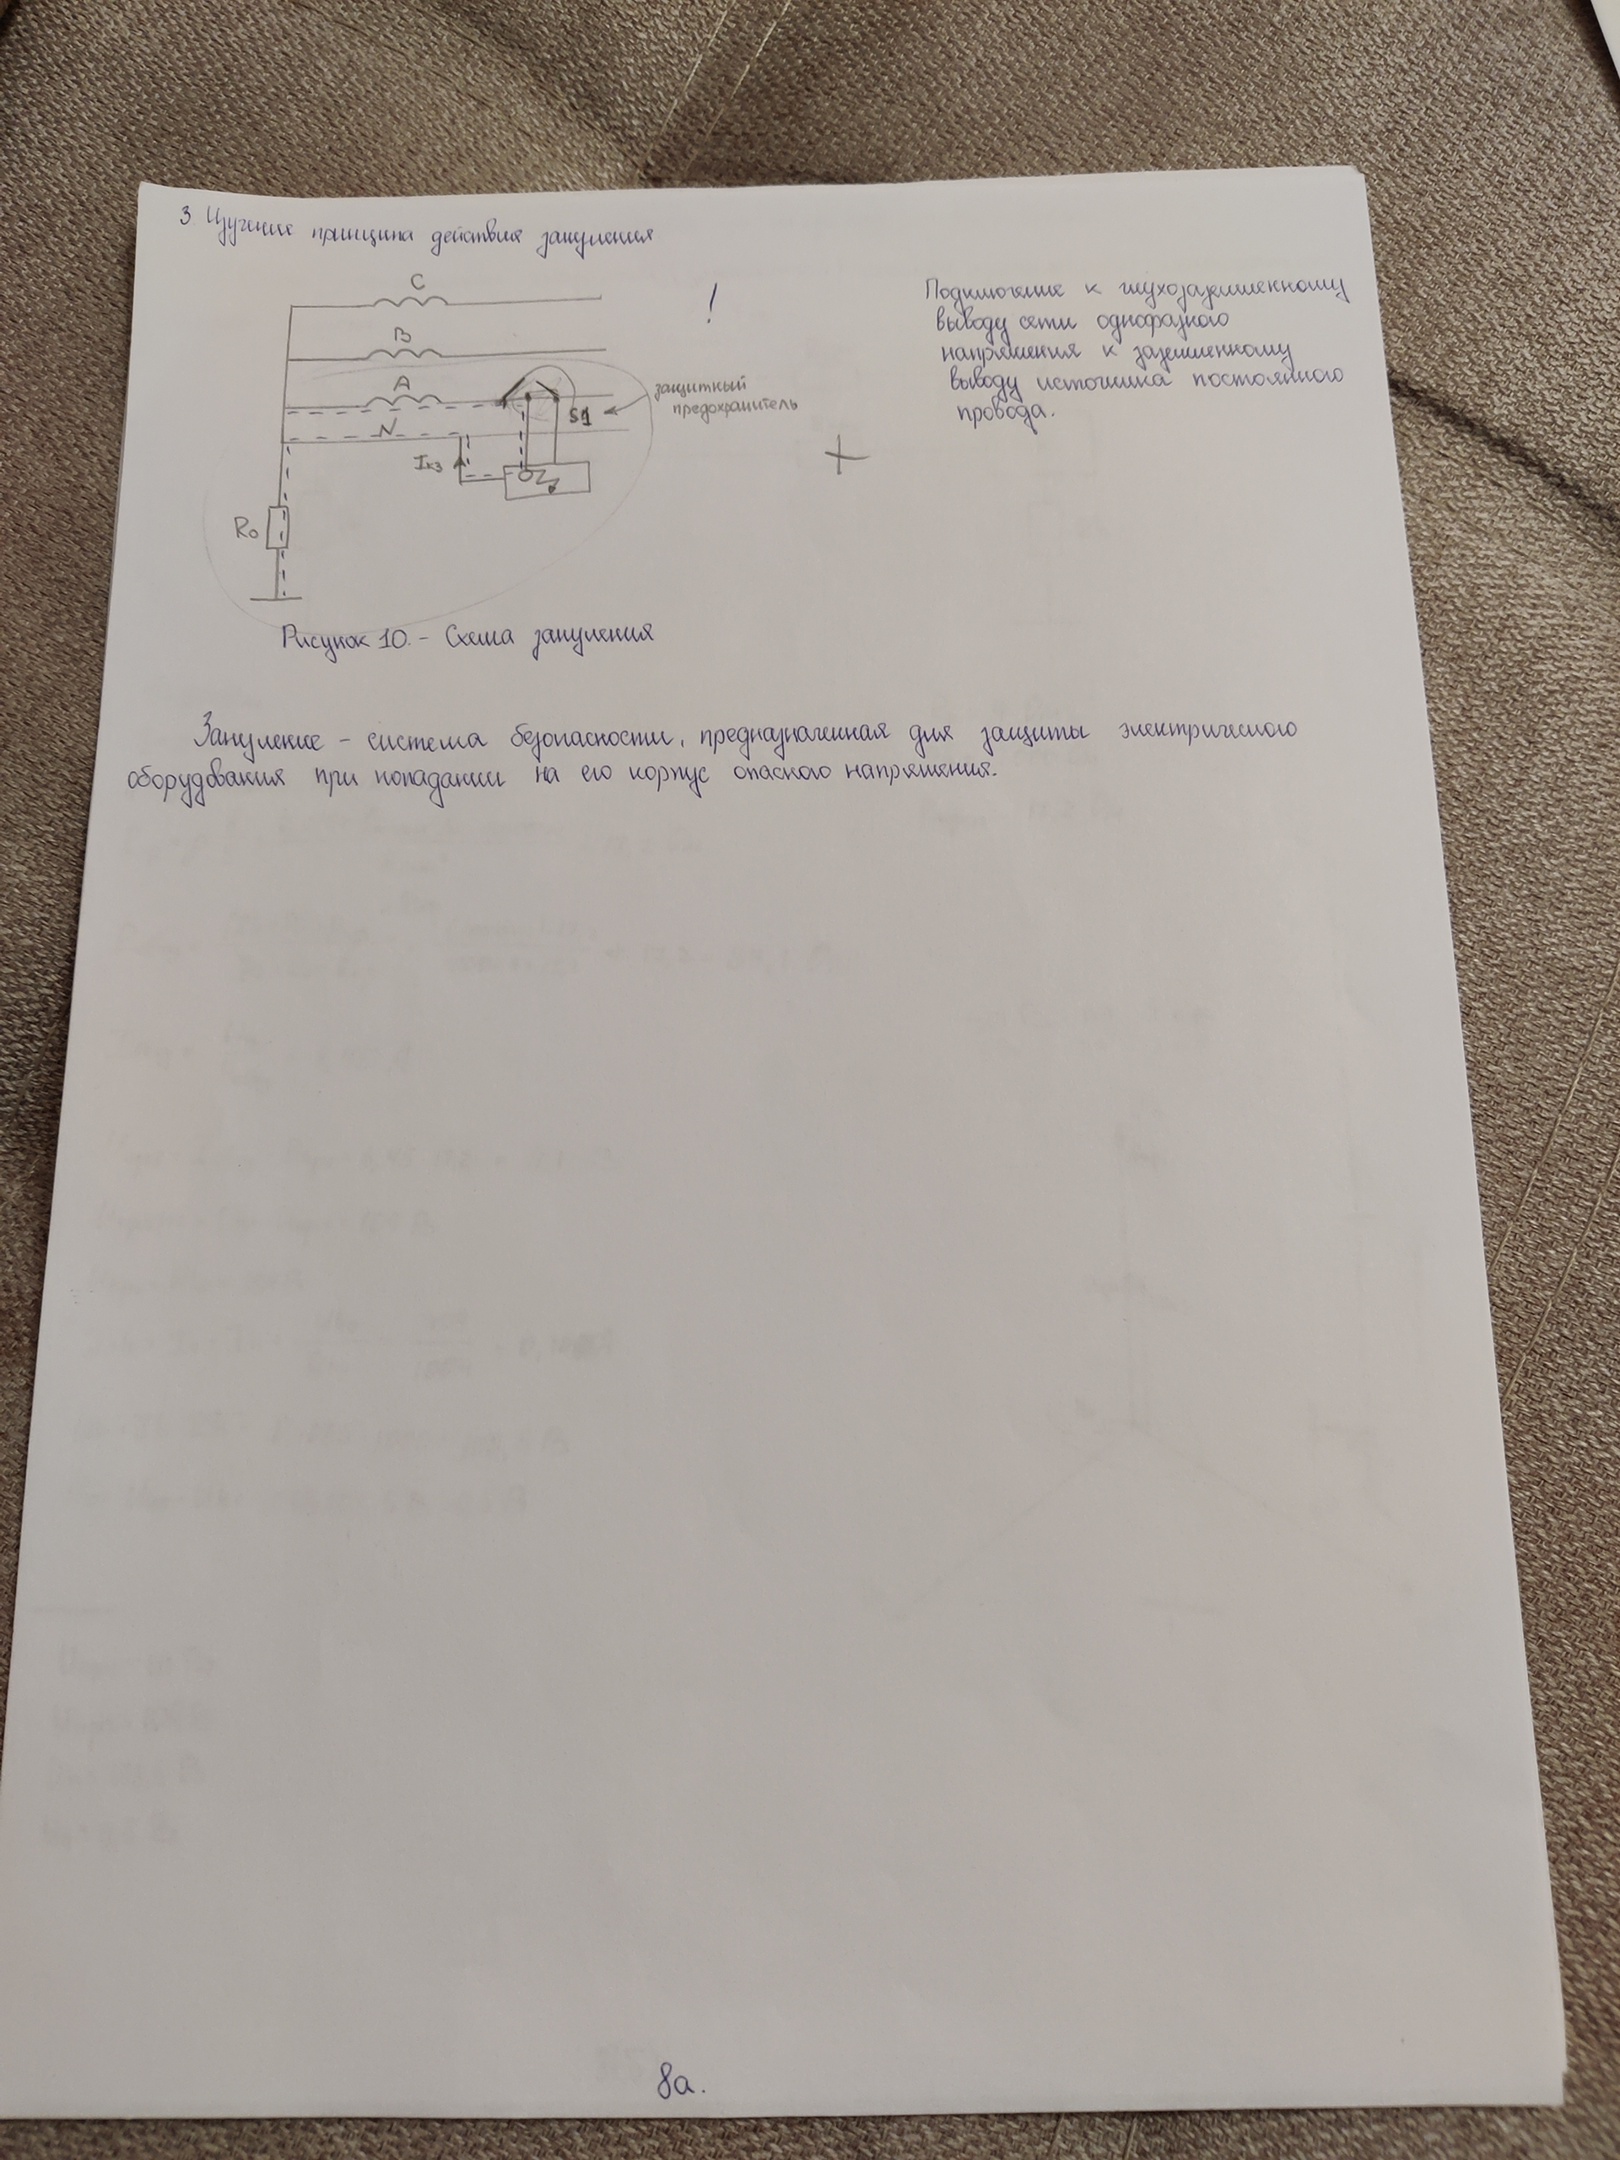 3 Изучение принципа действия зануления
C
B
A
N
Iкз
R₀
S1
защитный
предохранитель
!
+
Подключение к глухозаземленному
выводу сети однофазного
напряжения к заземленному
выводу источника постоянного
провода.
Рисунок 10. - Схема зануления
Зануление - система безопасности, предназначенная для защиты электрического
оборудования при попадании на его корпус опасного напряжения.
8а.